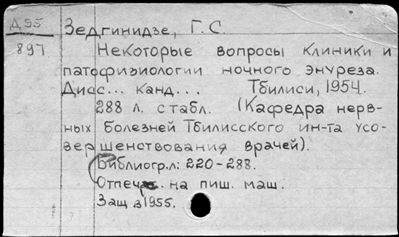 Д55
897
Зедгинидзе, Г.С.
Некоторые вопросы клиники и
патофизиологии ночного энуреза.
Дисс... канд... Тбилиси, 1954.
288 л. с табл. (Кафедра нерв-
ных болезней Тбилисского ин-та усо-
вершенствования врачей).
Библиогр.л: 220-288.
Отпечат. на пиш. маш.
Защ в 1955.